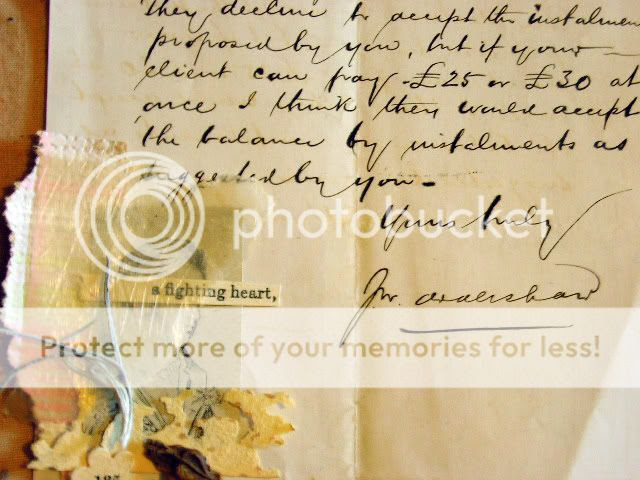 they decline to accept the instalmen
proposed by you, but if your
client can pay £25 or £30 at
once I think they would accept
the balance by instalments as
suggested by you -
Yours truly
photobucket
a fighting heart,
Protect more of your memories for less!